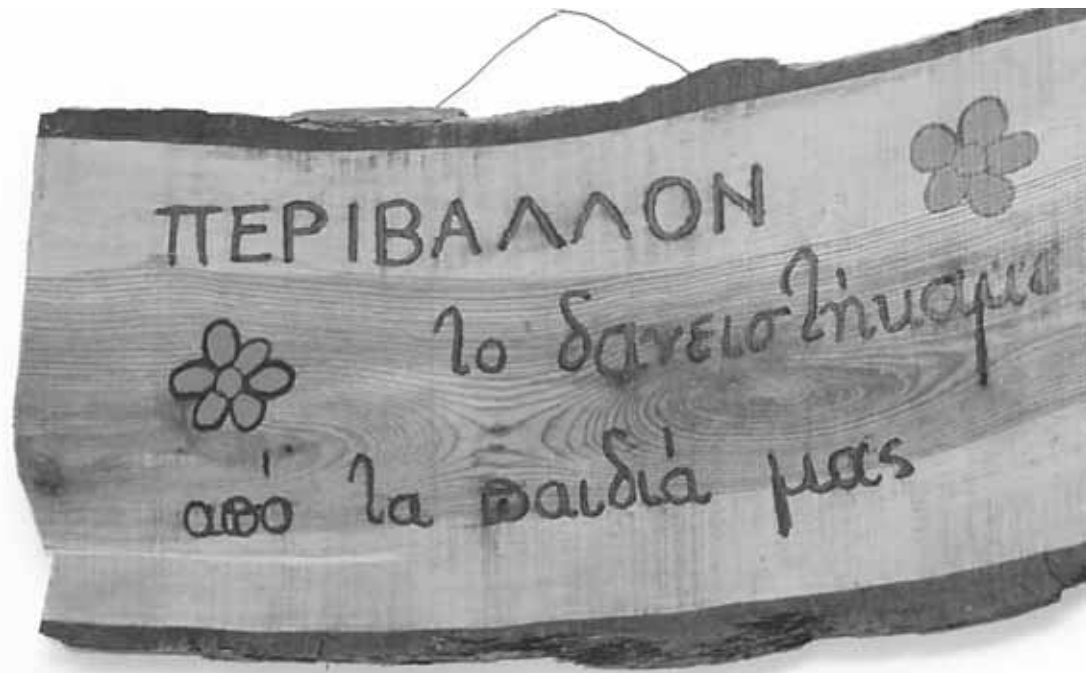 ΠΕΡΙΒΑΛΛΟΝ
το δανειστήκαμε
από τα παιδιά μας